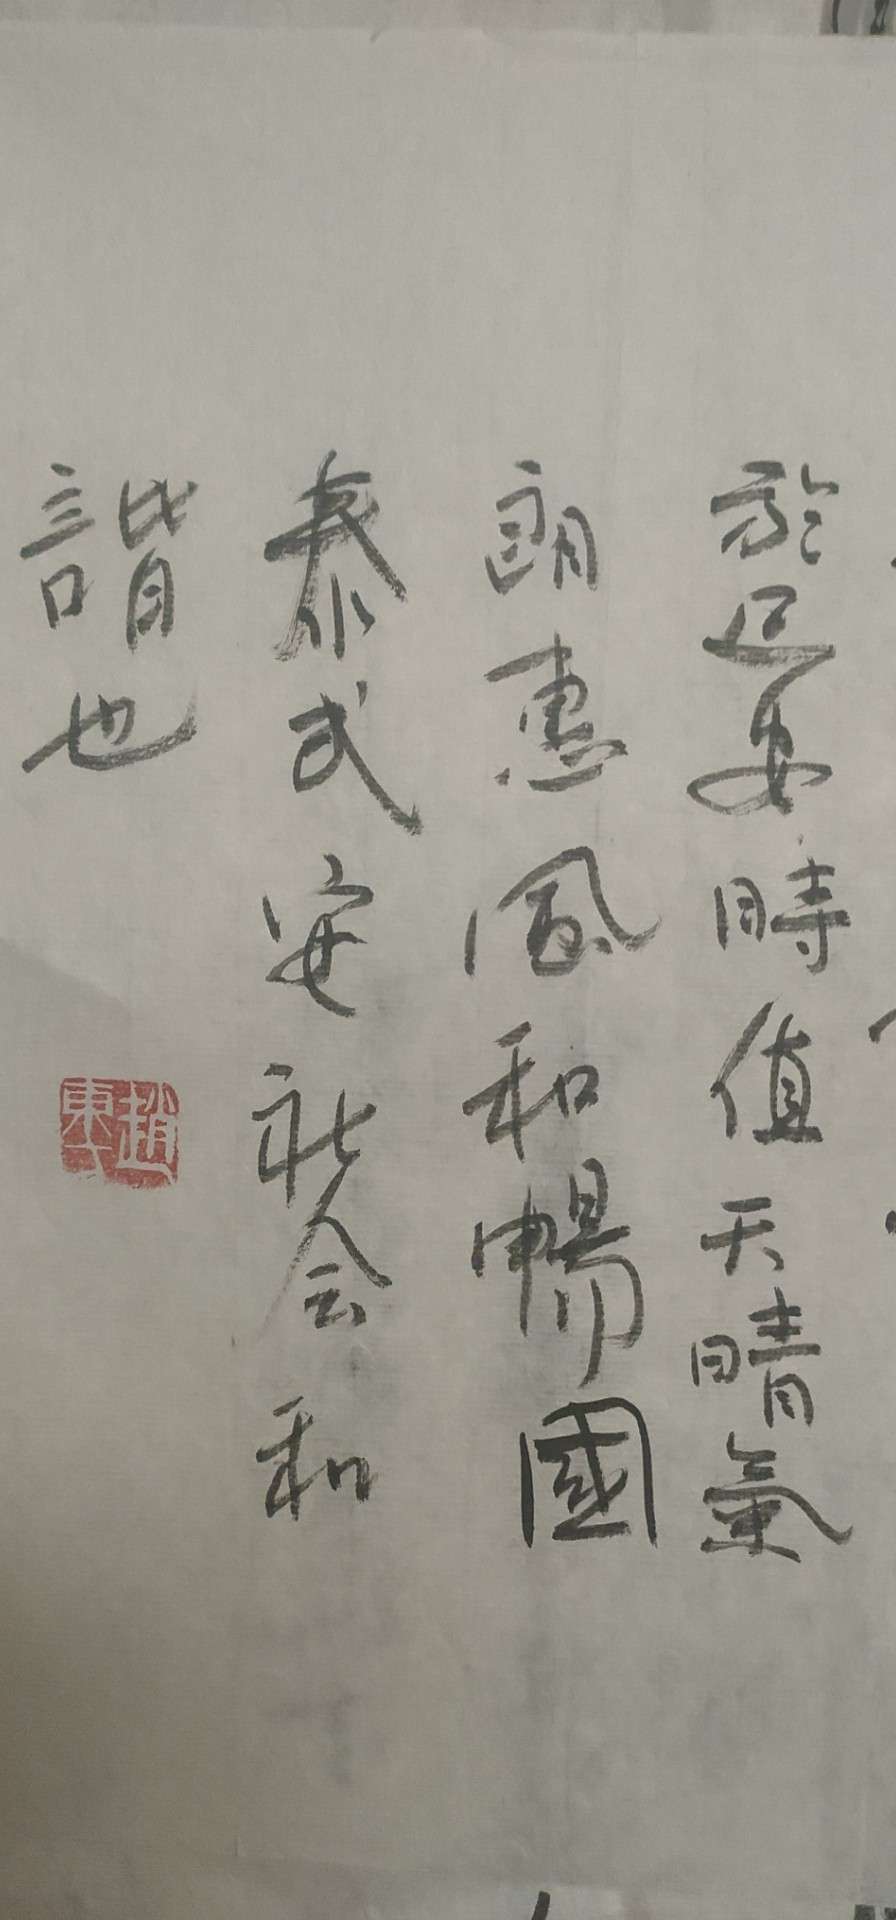 於延安時值天晴氣
朗惠風和暢國
泰民安社会和
諧也
趙東